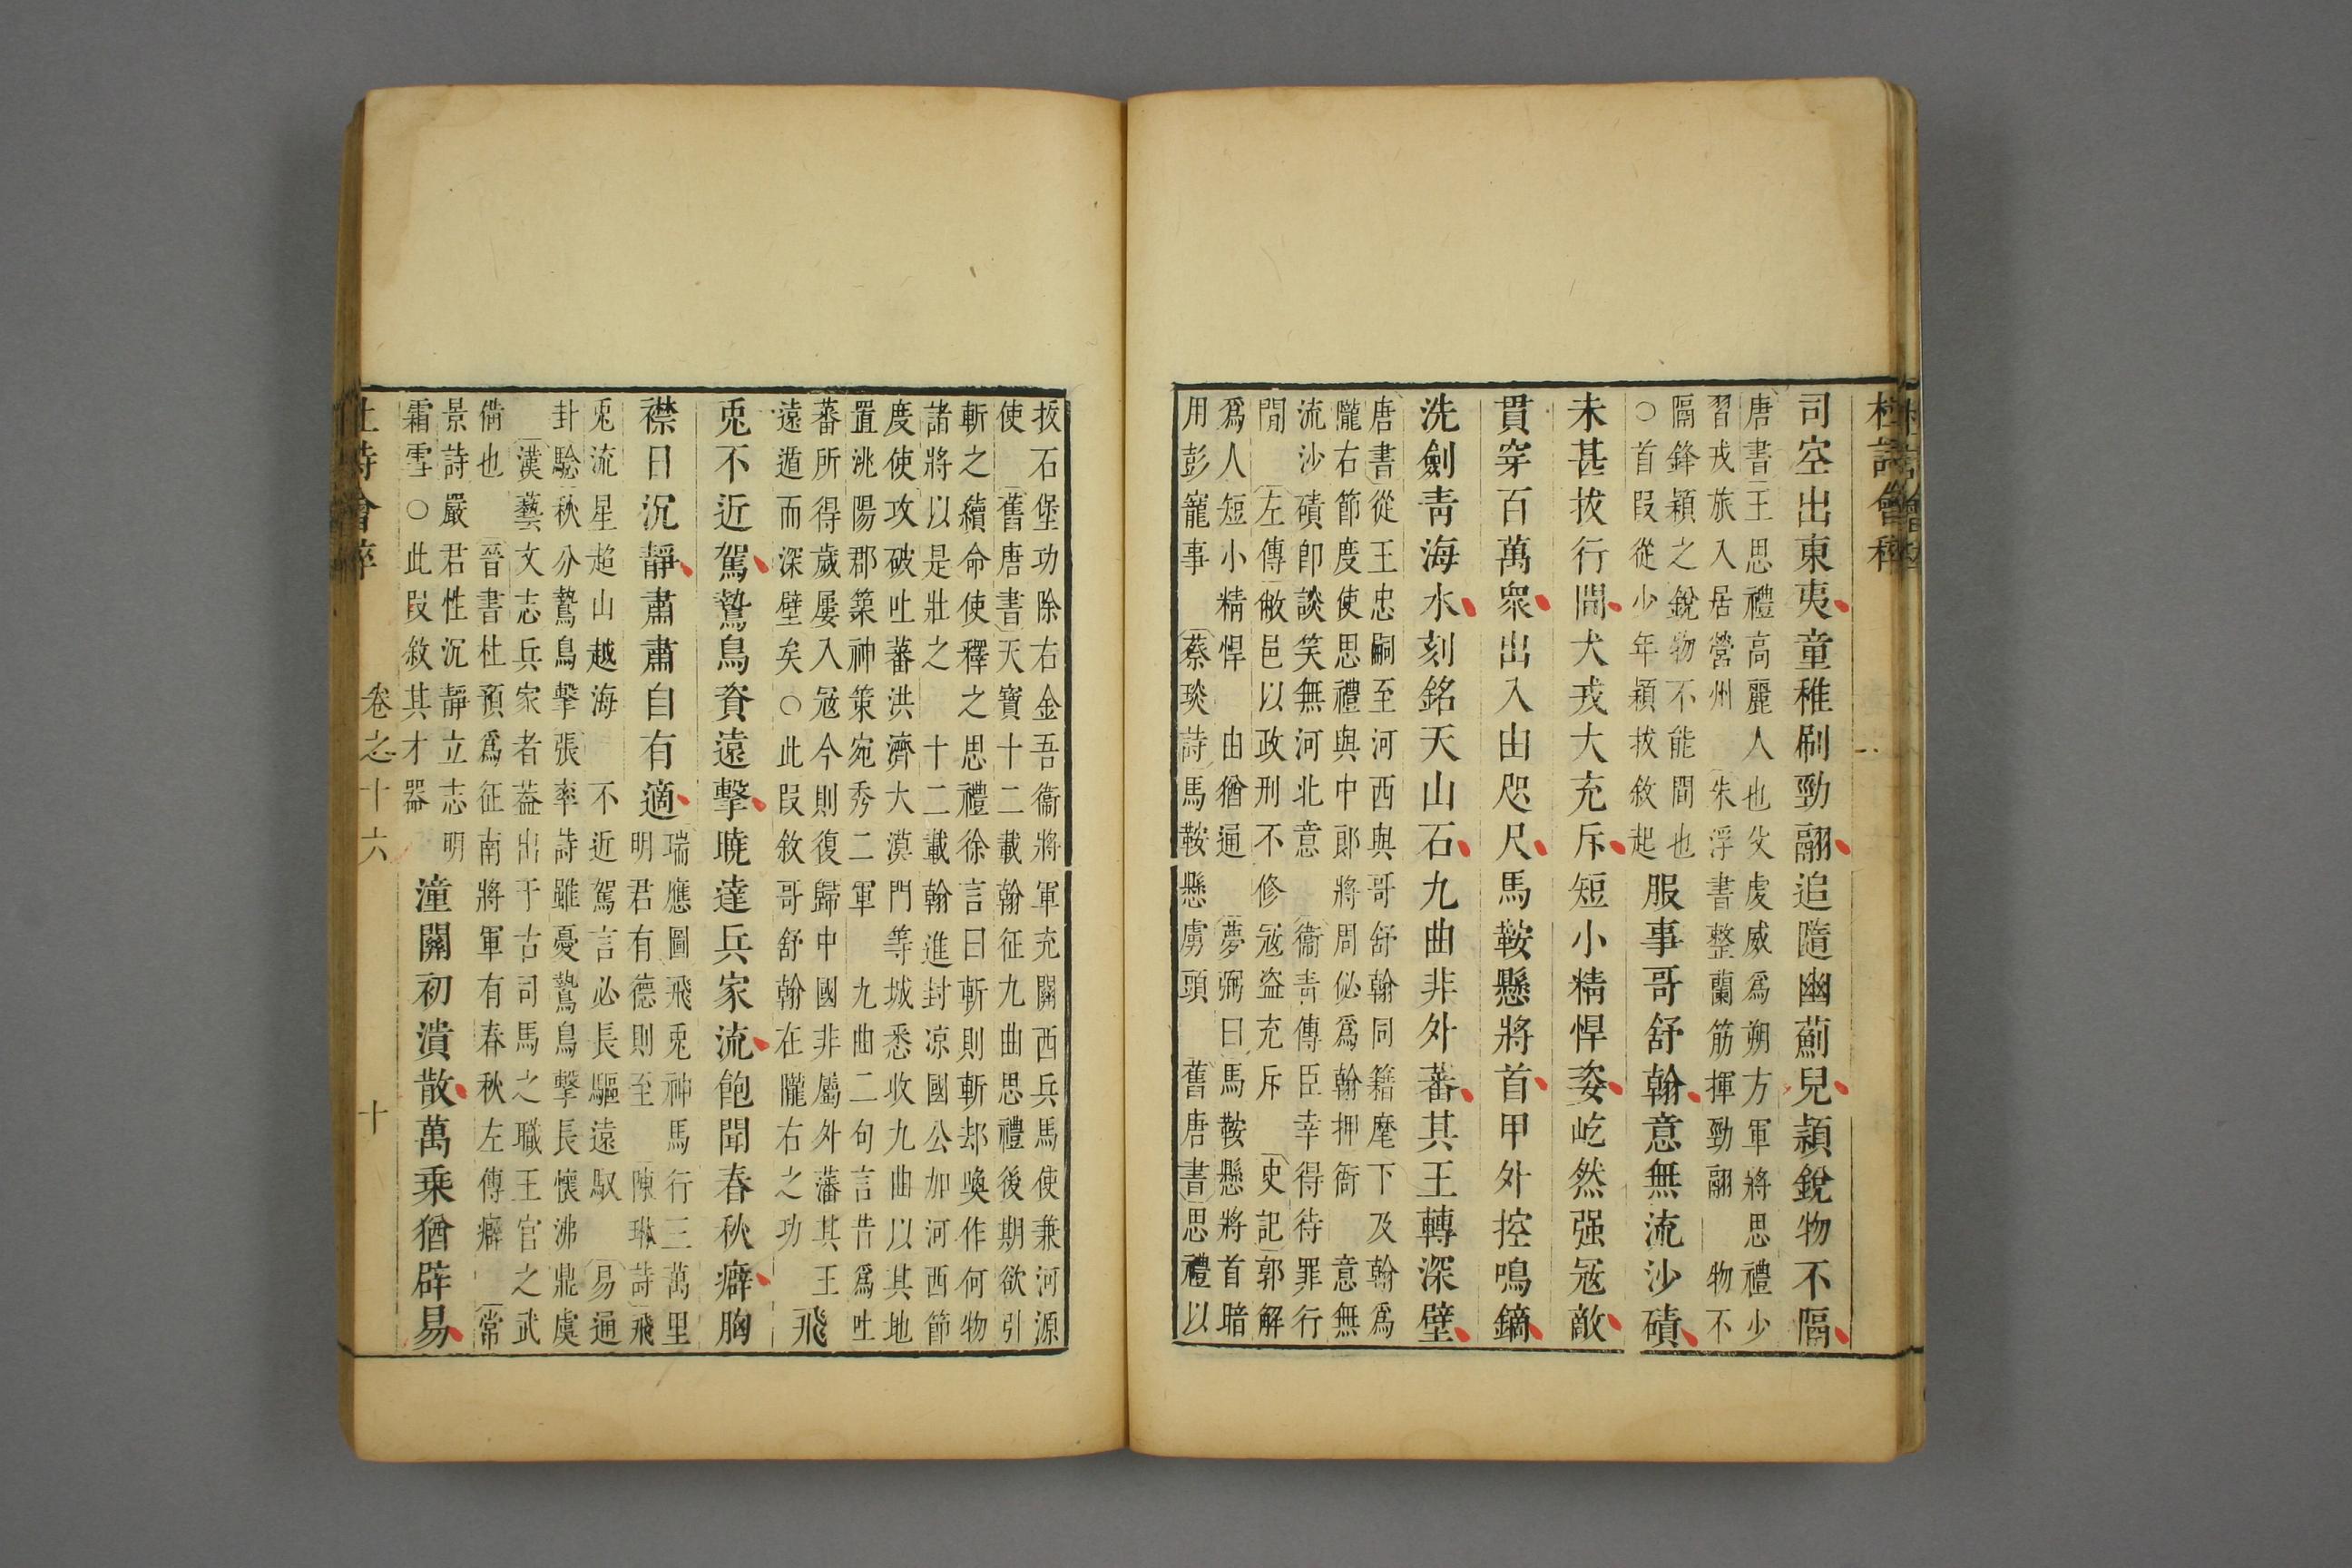 杜詩會稡
司空出東夷童稚刷勁翮追隨幽薊兒穎銳物不隔
唐書王思禮高麗人也父虔威爲朔方軍將思禮少
習戎旅入居營州　朱浮書整蘭筋揮勁翮　物不
隔鋒穎之銳物不能間也
○首叚從少年穎拔敘起
服事哥舒翰意無流沙磧
未甚拔行間犬戎大充斥短小精悍姿屹然强冦敵
貫穿百萬衆出入由咫尺馬鞍懸將首甲外控鳴鏑
洗劍靑海水刻銘天山石九曲非外蕃其王轉深壁
唐書從王忠嗣至河西與哥舒翰同籍麾下及翰爲
隴右節度使思禮與中郞將周佖爲翰押衙　意無
流沙磧卽談笑無河北意　衞靑傳臣幸得待罪行
閒　左傳敝邑以政刑不修冦盜充斥　史記郭解
爲人短小精悍　由猶通　夢弼曰馬鞍懸將首暗
用彭寵事　蔡琰詩馬鞍懸虜頭　舊唐書思禮以
拔石堡功除右金吾衞將軍充關西兵馬使兼河源
使　舊唐書天寶十二載翰征九曲思禮後期欲引
斬之續命使釋之思禮徐言曰斬則斬却喚作何物
諸將以是壯之　十二載翰進封凉國公加河西節
度使攻破吐蕃洪濟大漠門等城悉收九曲以其地
置洮陽郡築神策宛秀二軍　九曲二句言昔爲吐
蕃所得歲屢入冦今則復歸中國非屬外藩其王
遠遁而深壁矣○此叚敘哥舒翰在隴右之功
飛
兎不近駕鷙鳥資遠擊曉達兵家流飽聞春秋癖胸
襟日沉靜肅肅自有適
瑞應圖飛兎神馬行三萬里
明君有德則至　陳琳詩飛
兎流星超山越海　不近駕言必長驅遠馭　易通
卦驗秋分鷙鳥擊張率詩雖憂鷙鳥擊長懷沸鼎虞
漢藝文志兵家者葢出于古司馬之職王官之武
備也　晉書杜預爲征南將軍有春秋左傳癖　常
景詩嚴君性沉靜立志明
霜雪○此叚敘其才器
潼關初潰散萬乘猶辟易
杜詩會稡　卷之十六　十